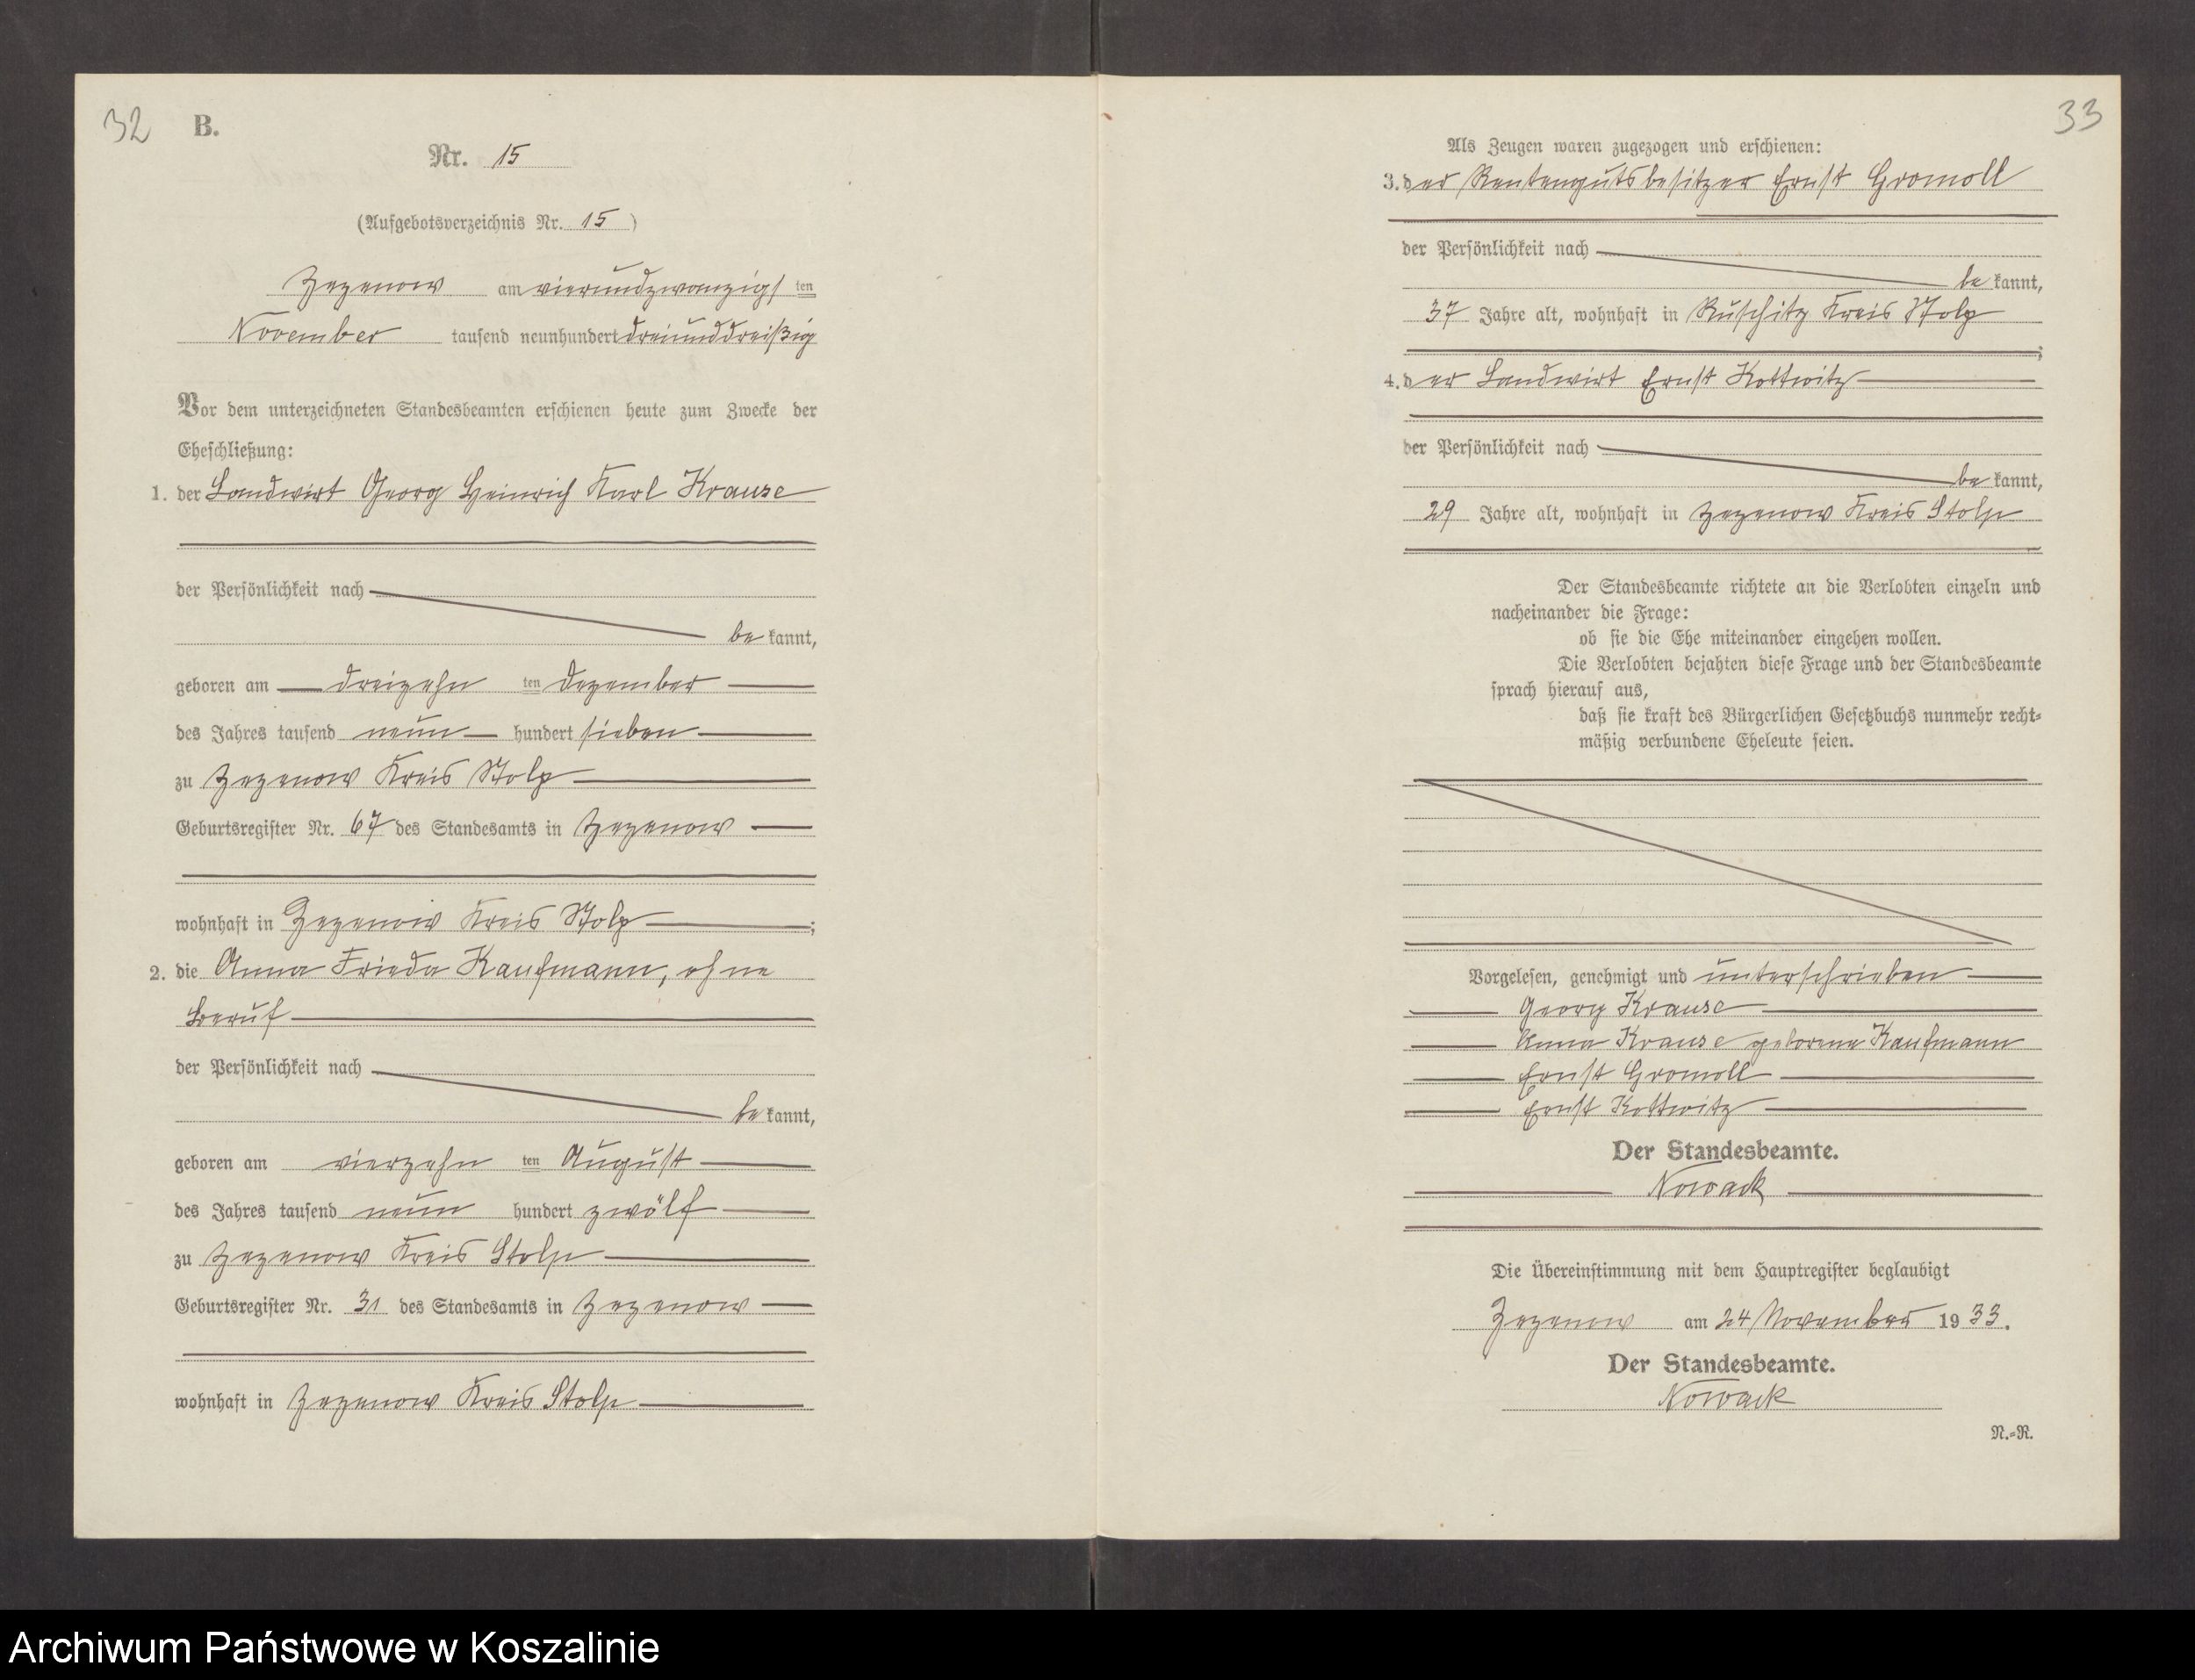 32
B.
Nr. 15
(Aufgebotsverzeichnis Nr. 15)
Zezenow am vierundzwanzigsten
November tausend neunhundert dreiunddreißig
Vor dem unterzeichneten Standesbeamten erschienen heute zum Zwecke der
Eheschließung:
1. der Landwirt Georg Heinrich Karl Krause
der Persönlichkeit nach
bekannt,
geboren am dreizehnten Dezember
des Jahres tausend neunhundert sieben
zu Zezenow Kreis Stolp
Geburtsregister Nr. 67 des Standesamts in Zezenow
wohnhaft in Zezenow Kreis Stolp;
2. die Anna Frieda Kaufmann, ohne
Beruf
der Persönlichkeit nach
bekannt,
geboren am vierzehnten August
des Jahres tausend neunhundert zwölf
zu Zezenow Kreis Stolp
Geburtsregister Nr. 31 des Standesamts in Zezenow
wohnhaft in Zezenow Kreis Stolp
33
Als Zeugen waren zugezogen und erschienen:
3. der Rentengutsbesitzer Ernst Gromoll
der Persönlichkeit nach
bekannt,
37 Jahre alt, wohnhaft in Ruschitz Kreis Stolp
;
4. der Landwirt Ernst Kottwitz
der Persönlichkeit nach
bekannt,
29 Jahre alt, wohnhaft in Zezenow Kreis Stolp
Der Standesbeamte richtete an die Verlobten einzeln und
nacheinander die Frage:
ob sie die Ehe miteinander eingehen wollen.
Die Verlobten bejahten diese Frage und der Standesbeamte
sprach hierauf aus,
daß sie kraft des Bürgerlichen Gesetzbuchs nunmehr recht-
mäßig verbundene Eheleute seien.
Vorgelesen, genehmigt und unterschrieben
Georg Krause
Anna Krause geborene Kaufmann
Ernst Gromoll
Ernst Kottwitz
Der Standesbeamte.
Nowack
Die Übereinstimmung mit dem Hauptregister beglaubigt
Zezenow am 24 November 1933.
Der Standesbeamte.
Nowack
N.-R.
Archiwum Państwowe w Koszalinie